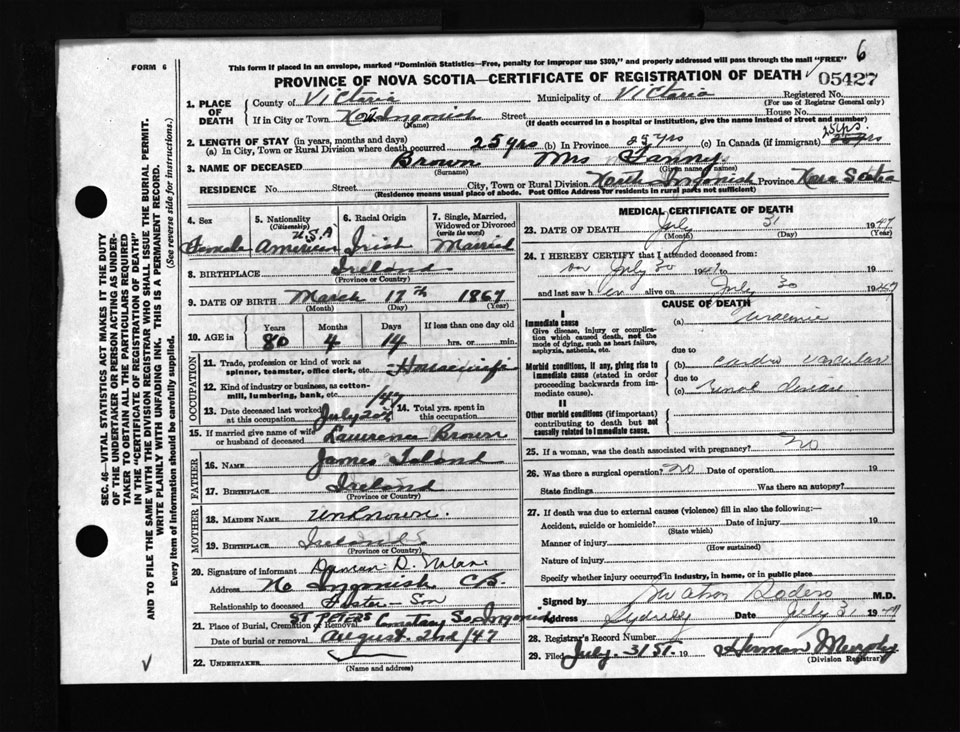 6
FORM 6
This form if placed in an envelope, marked "Dominion Statistics—Free, penalty for improper use $300," and properly addressed will pass through the mail "FREE"
PROVINCE OF NOVA SCOTIA—CERTIFICATE OF REGISTRATION OF DEATH
05427
1. PLACE OF DEATH
County of Victoria Municipality of Victoria Registered No.
(For use of Registrar General only)
If in City or Town Ingonish Street House No.
(Name) (If death occurred in a hospital or institution, give the name instead of street and number)
2. LENGTH OF STAY (in years, months and days)
(a) In City, Town or Rural Division where death occurred 25 yrs (b) In Province 25 yrs (c) In Canada (if immigrant) 25 yrs.
3. NAME OF DECEASED Brown Mrs Fanny
(Surname) (Given name or names)
RESIDENCE No. Street City, Town or Rural Division North Ingonish Province Nova Scotia
(Residence means usual place of abode. Post Office Address for residents in rural parts not sufficient)
4. Sex Female
5. Nationality (Citizenship) U.S.A American
6. Racial Origin Irish
7. Single, Married, Widowed or Divorced (write the word) Married
8. BIRTHPLACE Ireland
(Province or Country)
9. DATE OF BIRTH March 17th 1867
(Month) (Day) (Year)
10. AGE in Years 80 Months 4 Days 14 If less than one day old hrs. or min.
OCCUPATION
11. Trade, profession or kind of work as spinner, teamster, office clerk, etc. Housewife
12. Kind of industry or business, as cotton-mill, lumbering, bank, etc.
13. Date deceased last worked at this occupation July 20th /47
14. Total yrs. spent in this occupation
15. If married give name of wife or husband of deceased Lawrence Brown
FATHER
16. NAME James
17. BIRTHPLACE Ireland
(Province or Country)
MOTHER
18. MAIDEN NAME Unknown.
19. BIRTHPLACE Ireland
(Province or Country)
20. Signature of informant D.
Address No Ingonish CB.
Relationship to deceased Foster-Son
21. Place of Burial, Cremation or Removal ST PETERS Cemetary So Ingonish
Date of burial or removal August. 2nd /47
22. UNDERTAKER
(Name and address)
MEDICAL CERTIFICATE OF DEATH
23. DATE OF DEATH July 31 1947
(Month) (Day) (Year)
24. I HEREBY CERTIFY that I attended deceased from:
on July 30 1947 to 19
and last saw h er alive on July 30 1947
CAUSE OF DEATH
I
Immediate cause
Give disease, injury or complication which caused death, not the mode of dying, such as heart failure, asphyxia, asthenia, etc.
(a) Uraemia
due to
Morbid conditions, if any, giving rise to immediate cause (stated in order proceeding backwards from immediate cause).
(b) Cardio vascular
due to
(c) Renal disease
II
Other morbid conditions (if important) contributing to death but not causally related to immediate cause.
25. If a woman, was the death associated with pregnancy? NO
26. Was there a surgical operation? NO Date of operation 19
State findings Was there an autopsy?
27. If death was due to external causes (violence) fill in also the following:—
Accident, suicide or homicide? Date of injury 19
(State which)
Manner of injury
(How sustained)
Nature of injury
Specify whether injury occurred in industry, in home, or in public place
Signed by M.D.
Address Date July 31 1947
28. Registrar's Record Number
29. Filed July. 31ST. 19 Herman Murphy
(Division Registrar)
SEC. 46—VITAL STATISTICS ACT MAKES IT THE DUTY OF THE UNDERTAKER OR PERSON ACTING AS UNDERTAKER TO OBTAIN ALL THE PARTICULARS REQUIRED IN THE "CERTIFICATE OF REGISTRATION OF DEATH" AND TO FILE THE SAME WITH THE DIVISION REGISTRAR WHO SHALL ISSUE THE BURIAL PERMIT.
WRITE PLAINLY WITH UNFADING INK. THIS IS A PERMANENT RECORD.
Every item of information should be carefully supplied. (See reverse side for instructions.)